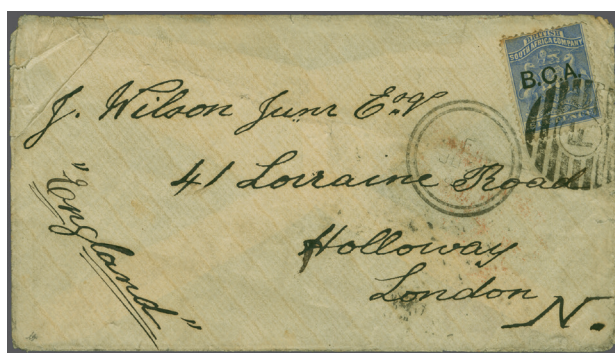 BRITISH
SOUTH AFRICA COMPANY
B.C.A.
J. Wilson Junr Esqr
41 Lorraine Road
Holloway
London
N.
"England"